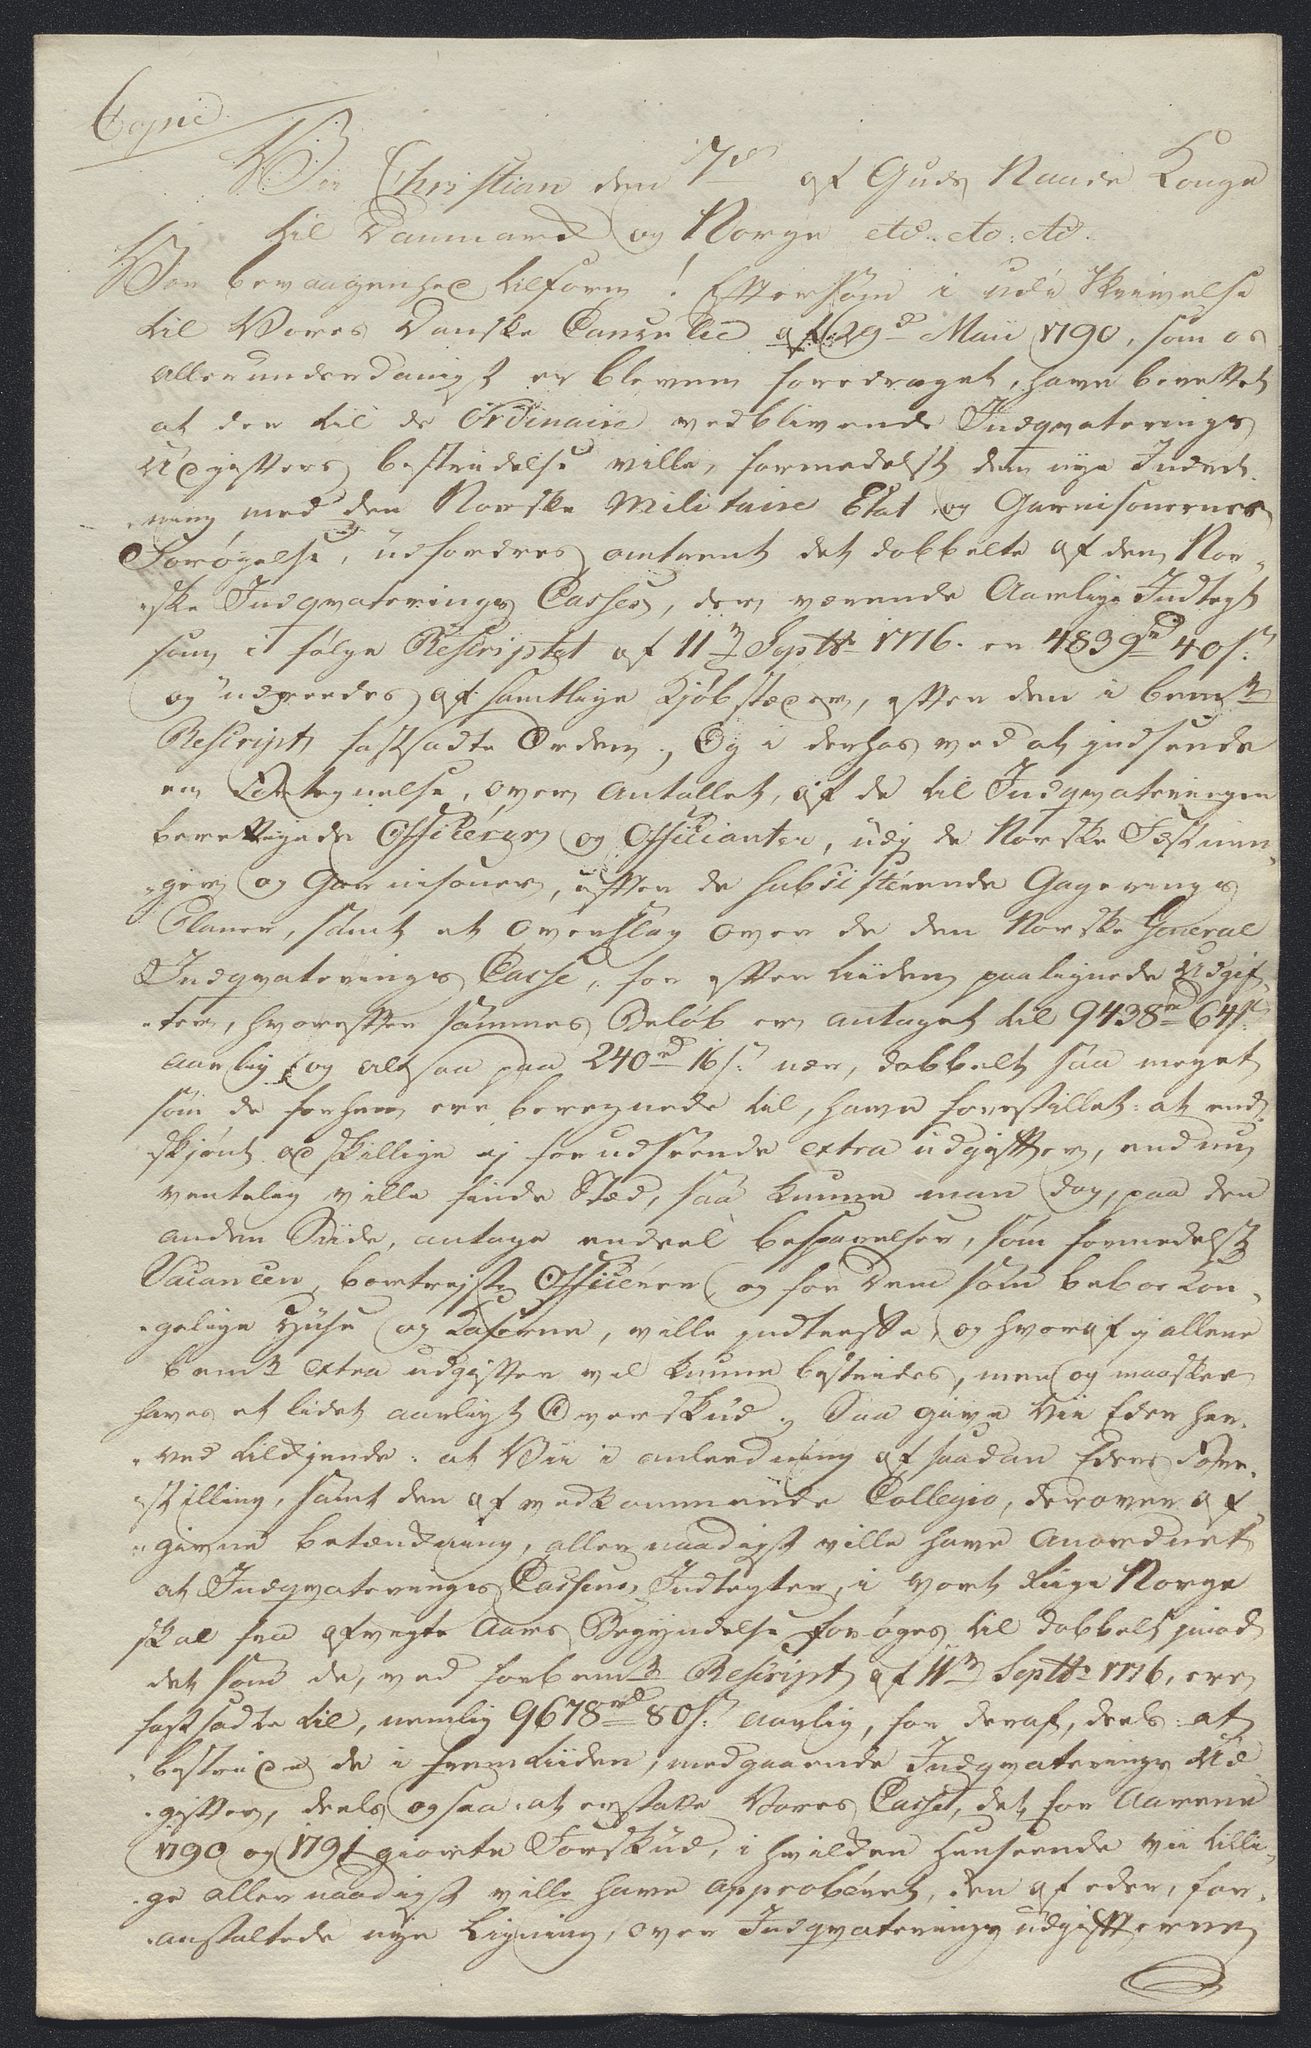 Copie.
Wii Christian den 7de af Guds Naade Konge
til Danmard og Norge etc. etc: etc.
Vor bevaagenhed tilforn! Eftersom i udi Skrivelse
til Vores Danske Cancelie af 29de Maii 1790, som os
allerunderdanigst er bleven foredraget, have berettet
at der til de Ordinaire vedblivende Indqvarterings
Udgifters bestridelse ville, formedelst den nye Indret-
-ning med den Norske Militaire Etat og Garnisonernes
Forøgelse, udfordres omtrent det dobbelte af den Nor-
-ske Indqvaterings Casses, der værende Aarlige Indtegt
som i følge Rescriptet af 11te Septbr 1776. er 4839rd 40s:
og udreedes af samtlige Kjøbstæder, efter den i bemte
Rescript fastsadte Orden; Og i derhos ved at indsende
en Fortegnelse, over Antallet, af de til Indqvateringen
berettigede Officerer og Officianter, udi de Norske Fæstnin-
-ger og Garnisoner, efter de subsisterende Gagerings
Planer, samt et Overslag over de den Norske General
Indqvaterings Casse, for efter tiiden paalignede Udgif-
-ter, hvorefter sammes Beløb er antaget til 9438rd 64s:
aarlig, og altsaa paa 240rd 16s: nær, dobbelt saa meget
som de forhen ere beregnede til, have forestillet: at end-
skjønt adskillige ej forudseende extra udgifter, endnu
ventelig ville finde Sted, saa kunne man dog, paa den
anden Side, antage endeel besparelser, som formedelst
Vacancer, bortrejste Officerer og for Dem som beboe Kon-
-gelige Huse og Caserne, ville indtreffe, og hvoraf ej allene
bemte extra udgifter vil kunne bestrides, men og maaskee
haves et lidet aarligt Overskud; Saa give Vii Eder her-
-ved tilkjende: at Vii i anleedning af saadan Eders Fore-
-stilling, samt den af vedkommende Collegio, derover af-
-givne betænkning, allernaadigst ville have anordnet
at Indqvaterings Cassens Indtegter, i vort Riige Norge
skal fra afvigte Aars Begyndelse forøges til dobbelt imod
det som de, ved forbemte Rescript af 11te Septbr 1776, ere
fastsadte til, nemlig 9678rd 80s: aarlig, for deraf, deels: at
bestride de i fremtiiden, medgaaende Indqvaterings Ud-
-gifter, deels ogsaa: at erstatte Vores Casse, det for Aarene
1790 og 1791 giorte Forskud, i hvilken henseende vii tilli-
-ge allernaadigst ville have approberet, den af eder, for-
-anstaltede nye Ligning, over Indqvaterings udgifterne